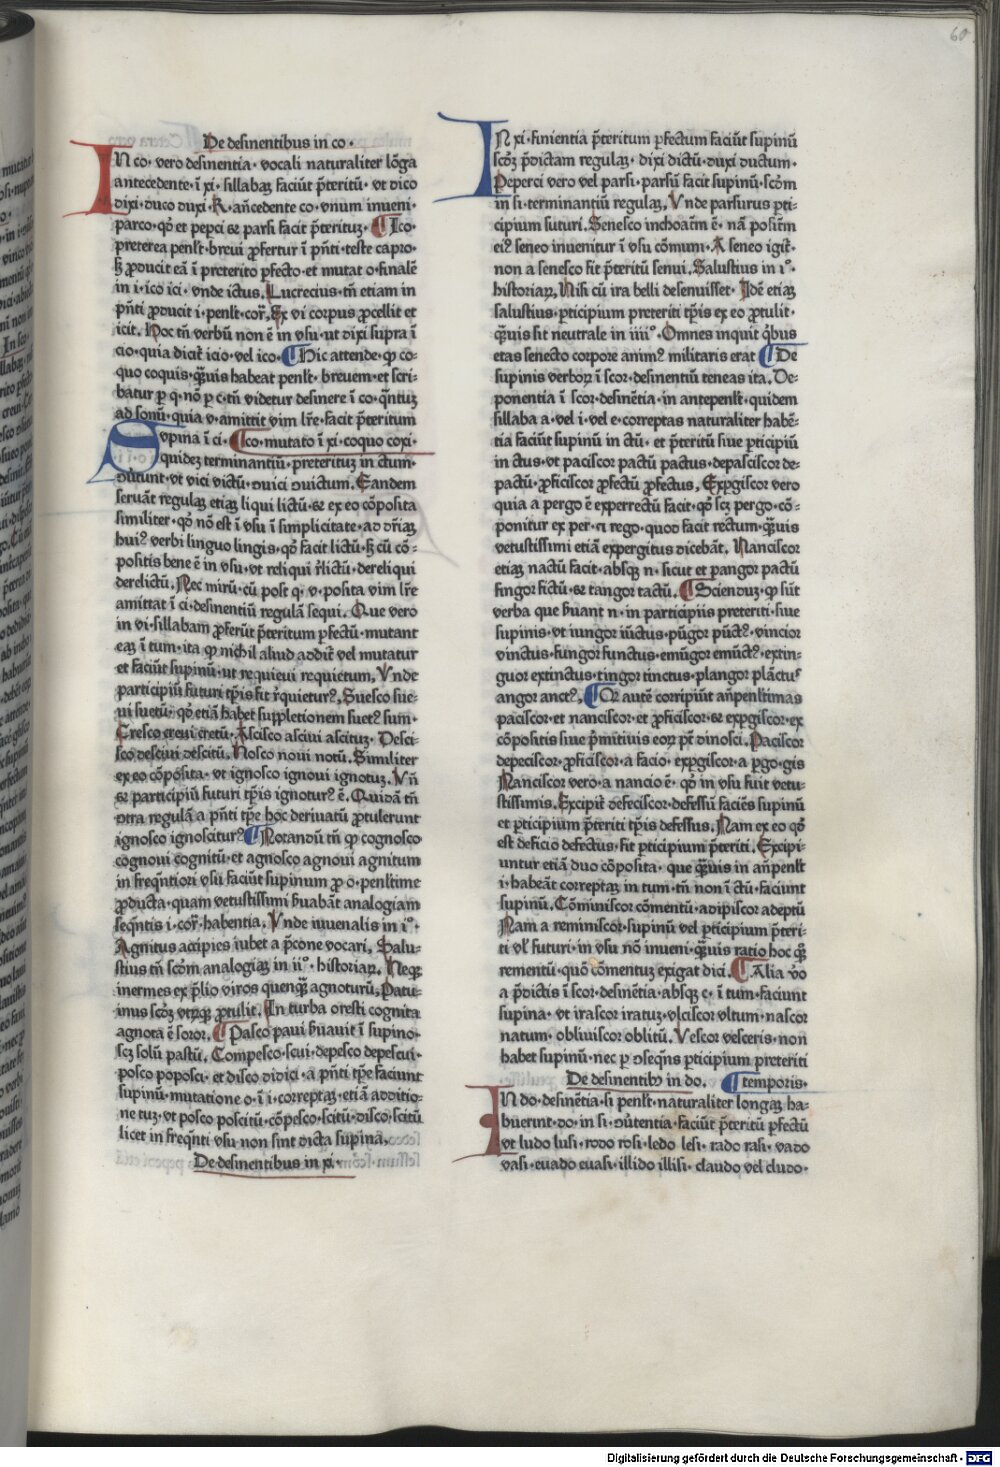 60
De desinentibus in co·
IN co· vero desinentia· vocali naturaliter lõga
antecedente· ĩ xi· sillabaꝫ faciũt p̃teritũ· vt dico
dixi· duco duxi· R· añcedente co· vnum inueni·
parco· qd̕ et peperci ⁊ parsi facit p̃terituꝫ· ¶ Ico·
preterea penl̕t· breui ꝓfertur ĩ pñti· teste capro·
ſꝫ ꝓducit eã ĩ preterito ꝑfecto· et mutat o· finalẽ
in i· ico ici· vnde ictus. Lucrecius· tñ etiam in
pñti ꝓducit i· penl̕t· cor̃. Ex vi corpus ꝓcellit et
icit. Hoc tñ verbũ non ẽ in vsu· ut dixi supra ĩ
cio· quia dicit̕ icio· vel ico· ¶ Hic attende· ꝙ co⸗
quo coquis· q̃uis habeat penl̕t· breuem· et scri⸗
batur ꝑ q· nõ ꝑ c· tñ videtur desinere ĩ co· q̃ntuꝫ
ad sonũ· quia v· amittit vim lr̃e· facit p̃teritum
Svpina ĩ ci· ¶ co· mutato ĩ xi· coquo coxi·
quideꝫ terminantiũ· preterituꝫ in ctum·
dũtunt· vt vici victũ· duici duictum. Eandem
seruãt regulaꝫ etiaꝫ liqui lictũ· ⁊ ex eo cõposita
similiter· qd̕ nõ est ĩ vsu ĩ simplicitate· ad dr̃iaꝫ
huiꝰ verbi linguo lingis· qd̕ facit lictũ· ſꝫ cũ cõ⸗
positis bene ẽ in vsu· vt reliqui r̃lictũ· dereliqui
derelictũ. Nec mirũ· cũ post q· v· posita vim lr̃e
amittat ĩ ci· desinentiũ regulã sequi. Que vero
in vi· sillabam ꝓferũt p̃teritum ꝑfectũ· mutant
eaꝫ ĩ tum· ita ꝙ nichil aliud addit̕ vel mutatur
et faciũt supinũ· ut requieui requietum. Vnde
participiũ futuri tp̃is fit r̃quieturꝰ. Suesco sue⸗
ui suetũ· qd̕ etiã habet suppletionem suetꝰ sum·
Cresco creui cretũ. Ascisco asciui ascituꝫ. Desci⸗
sco desciui descitũ. Nosco noui notũ. Similiter
ex eo cõposita· vt ignosco ignoui ignotuꝫ. Vñ
⁊ participiũ futuri tp̃is ignoturꝰ ẽ. Quidã tñ
ɔtra regulã a pñti tp̃e hoc deriuatũ ꝓtulerunt
ignosco ignosciturꝰ ¶ Notandũ tñ ꝙ cognosco
cognoui cognitũ· et agnosco agnoui agnitum
in freq̃ntiori vsu faciũt supinum ꝓ o· penl̕time
ꝓducta· quam vetustissimi ẽuabãt analogiam
seq̃ntis i· cor̃· habentia. Vnde iuuenalis in i°·
Agnitus accipies iubet a p̃cone vocari. Salu⸗
stius tñ scd̕m analogiaꝫ in ii°· historiaꝝ. Neqꝫ
inermes ex p̃lio viros quenq̃ agnoturũ. Patu⸗
inus scd̕ꝫ vtrũqꝫ ꝓtulit. In turba oresti cognita
agnota ẽ soror. ¶ Pasco paui ẽuauit ĩ supino·
scꝫ solũ pastũ. Compesco· scui· depesco depescui·
posco poposci· et disco didici· a pñti tp̃e faciunt
supinũ· mutatione o· ĩ i· correptaꝫ· etiã additio⸗
ne tuꝫ· vt posco poscitũ· cõpesco· scitũ· disco· scitũ
licet in freq̃nti vsu non sint dicta supina.
De desinentibus in xi·
IN xi· finientia p̃teritum ꝑfectum faciũt supinũ
scd̕ꝫ p̃dictam regulaꝫ· dixi dictũ· duxi ductum·
Peperci vero vel parsi· parsũ facit supinũ· scd̕m
in si· terminantiũ regulaꝫ. Vnde parsurus ꝑti⸗
cipium futuri. Senesco inchoatiũ ẽ· nã positiũ
eiꝰ seneo inuenitur ĩ vsu cõmum. A seneo igit̕
non a senesco fit p̃teritũ senui. Salustius in i°·
historiaꝝ. Nisi cũ ira belli desenuisset· Idẽ etiaꝫ
salustius· ꝑticipium preteriti tp̃is ex eo ꝓtulit·
q̃uis sit neutrale in iiii°. Omnes inquit q̃bus
etas senecto corpore animꝰ militaris erat ¶ De
supinis verboꝝ ĩ scor· desinentiũ teneas ita. De⸗
ponentia ĩ scor· desinẽtia· in antepenl̕t· quidem
sillaba a· vel i· vel e· correptas naturaliter habẽ⸗
tia faciũt supinũ in ctũ· et p̃teritũ siue ꝑticipiũ
in ctus· vt paciscor pactũ pactus· depasciscor de⸗
pactũ· ꝓficiscor ꝓfectũ ꝓfectus. Exꝑgiscor vero
quia a pergo ẽ experrectũ facit· qd̕ scꝫ pergo· cõ⸗
ponitur ex per· ⁊ rego· quod facit rectum· q̃uis
vetustissimi etiã expergitus dicebãt. Nanciscor
etiaꝫ nactũ facit· absqꝫ n· sicut et pangor pactũ
fingor fictũ· ⁊ tangor tactũ. ¶ Sciendũ· ꝙ sũt
verba que ẽuant n· in participiis preteriti· siue
supinis· vt iungor iũctus· pũgor pũctꝰ· vincior
vinctus· fungor functus· emũgor emũctꝰ· extin⸗
guor extinctus· tingor tinctus· plangor plãctꝰ
angor anctꝰ. ¶ Or autẽ corripiũt añpenl̕timas
paciscor· et nanciscor· et ꝓficiscor· ⁊ exꝑgiscor· ex
cõpositis siue p̃mitiuis eoꝝ pt̃ dinosci. Paciscor
depeciscor· ꝓficiscor· a facio· exꝑgiscor· a ꝑgo· gis
Nanciscor vero· a nancio ẽ· qd̕ in vsu fuit vetu⸗
stissimis. Excipit̕ defeciscor· defessũ faciẽs supinũ
et ꝑticipium p̃teriti tp̃is defessus. Nam ex eo qd̕
est deficio defectus· fit ꝑticipium p̃teriti. Excipi⸗
untur etiã duo cõposita· que q̃uis in añpenl̕t
i· habeãt correptaꝫ in tum· tñ non ĩ ctũ· faciunt
supinũ. Cõminiscor cõmentũ· adipiscor adeptũ
Nam a reminiscor· supinũ vel ꝑticipium p̃teri⸗
ti vl̕ futuri· in vsu nõ inueni· q̃uis ratio hoc q̃⸗
rementũ· quõ cõmentuꝫ exigat dici. ¶ Alia v̕o
a p̃dictis ĩ scor· desinẽtia· absqꝫ c· ĩ tum· faciunt
supina· vt irascor iratuꝫ· vlciscor vltum· nascor
natum· obliuiscor oblitũ. Vescor vesceris· non
habet supinũ· nec ꝑ ɔseq̃ns ꝑticipium preteriti
De desinentibꝰ in do. ¶ temporis·
IN do· desinẽtia· si penl̕t· naturaliter longaꝫ ha⸗
buerint· do· in si· ɔũtentia· faciũt p̃teritũ ꝑfectũ
vt ludo lusi· rodo rosi· ledo lesi· rado rasi· vado
vasi· euado euasi· illido illisi· claudo vel cludo·
Digitalisierung gefördert durch die Deutsche Forschungsgemeinschaft - DFG